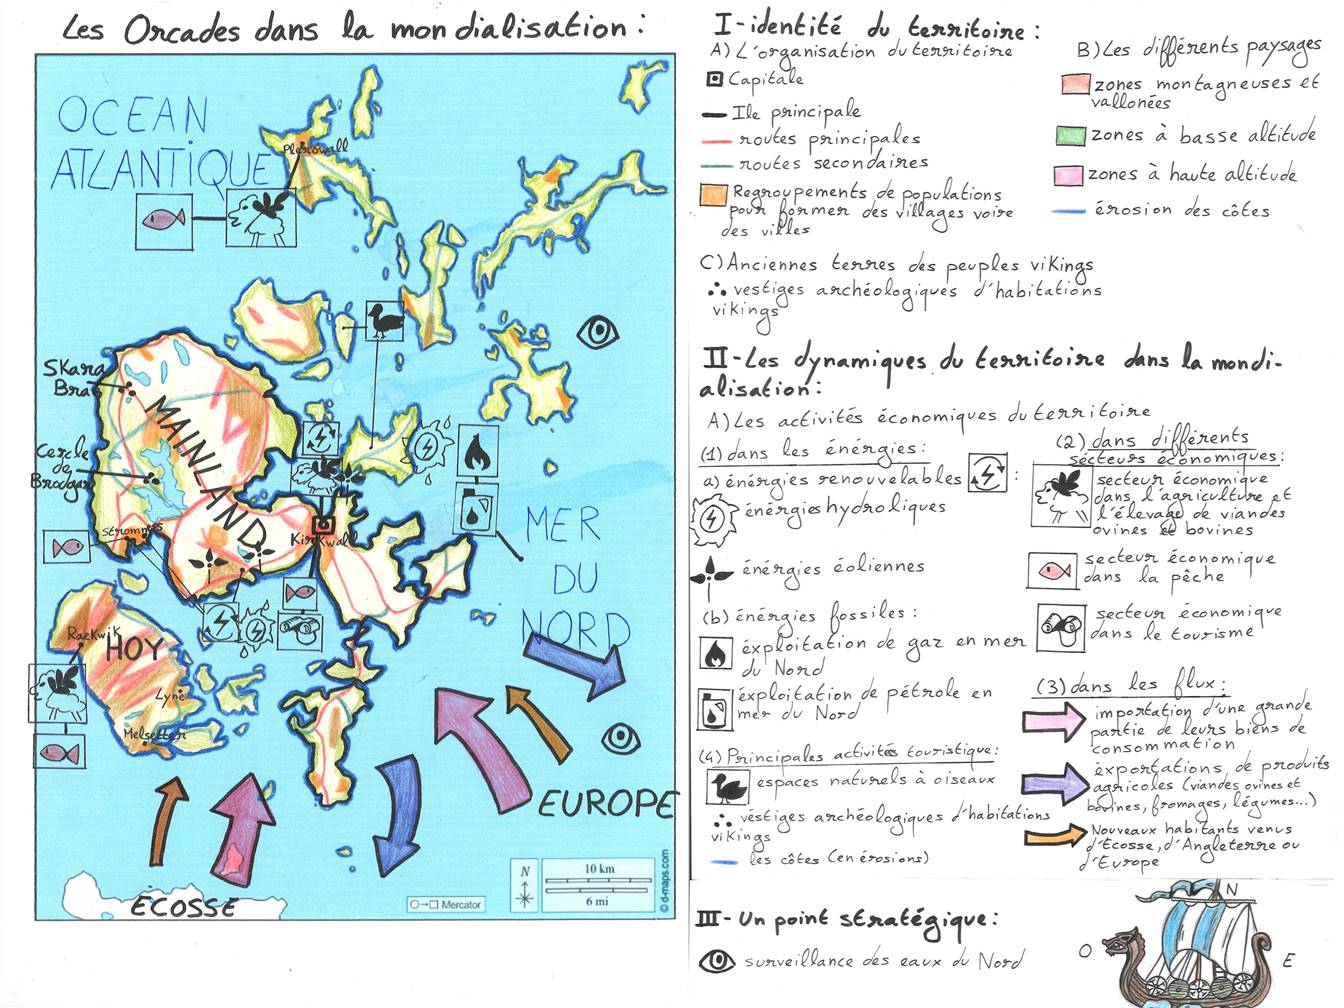 Les Orcades dans la mondialisation :
OCEAN
ATLANTIQUE
Pierowall
Skara
Brae
MAINLAND
Cercle
de
Brodgar
Stromness
Kirkwall
MER
DU
NORD
Raekwik
HOY
Lyne
Melsetter
EUROPE
ÉCOSSE
N
10 km
6 mi
Mercator
© d-maps.com
I - identité du territoire :
A) L'organisation du territoire
Capitale
Ile principale
routes principales
routes secondaires
Regroupements de populations
pour former des villages voire
des villes
B) Les différents paysages
zones montagneuses et
vallonées
zones à basse altitude
zones à haute altitude
érosion des côtes
C) Anciennes terres des peuples vikings
vestiges archéologiques d'habitations
vikings
II - Les dynamiques du territoire dans la mondi-
alisation :
A) Les activités économiques du territoire
(1) dans les énergies :
a) énergies renouvelables :
énérgies hydroliques
énérgies éoliennes
(b) énérgies fossiles :
éxploitation de gaz en mer
du Nord
éxploitation de pétrole en
mer du Nord
(2) dans différents
sécteurs économiques :
secteur économique
dans l'agriculture et
l'élevage de viandes
ovines et bovines
secteur économique
dans la pêche
secteur économique
dans le tourisme
(3) dans les flux :
importation d'une grande
partie de leurs biens de
consommation
éxportations de produits
agricoles (viandes ovines et
bovines, fromages, légumes...)
Nouveaux habitants venus
d'Écosse, d'Angleterre ou
d'Europe
(4) Principales activités touristique :
espaces naturels à oiseaux
véstiges archéologiques d'habitations
vikings
les côtes (en érosions)
III - Un point stratégique :
surveillance des eaux du Nord
N
O
E